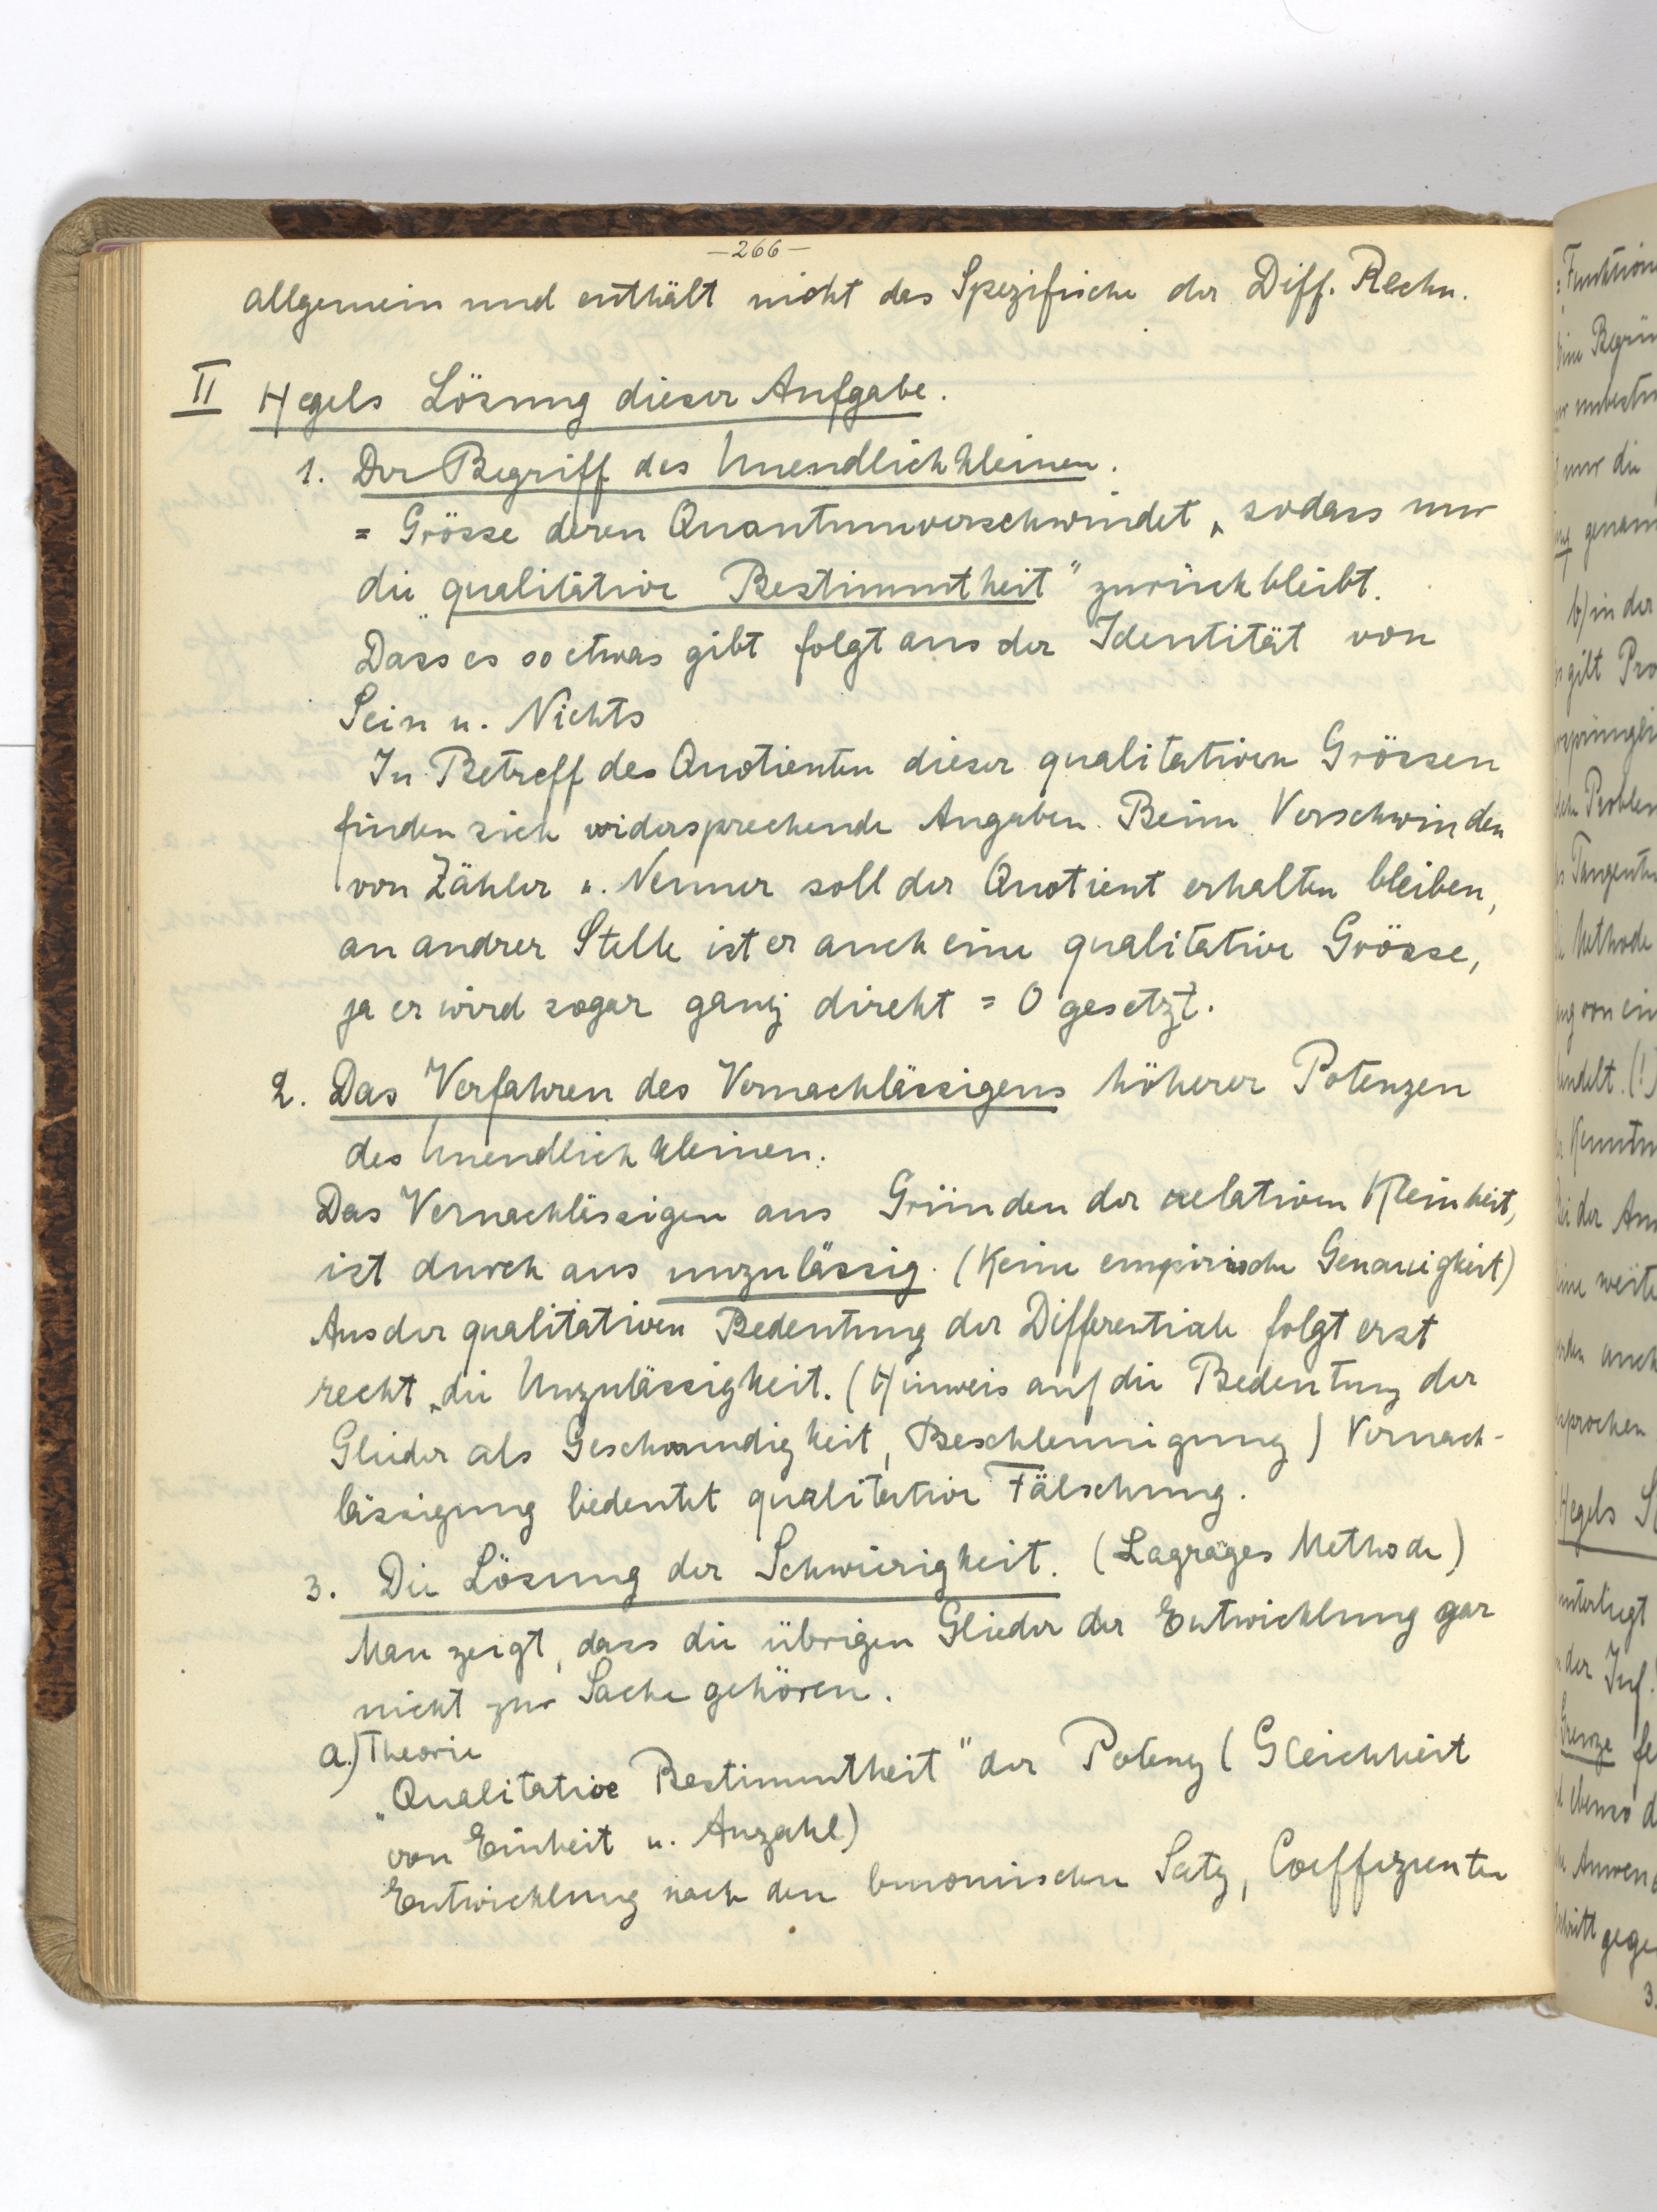 —266—
allgemein und enthält nicht das Spezifische der Diff. Rechn.
II Hegels Lösung dieser Aufgabe.
1. Der Begriff des Unendlichkleinen.
= Grösse deren Quantumverschwindet, sodass nur
die „qualitative Bestimmtheit" zurückbleibt.
Dass es so etwas gibt folgt aus der Identität von
Sein u. Nichts
In Betreff des Quotienten dieser qualitativen Grössen
finden sich widersprechende Angaben. Beim Verschwinden
von Zähler u. Nenner soll der Quotient erhalten bleiben,
an andrer Stelle ist er auch eine qualitative Grösse,
ja er wird sogar ganz direkt = 0 gesetzt.
2. Das Verfahren des Vernachlässigens höherer Potenzen
des Unendlich kleinen.
Das Vernachlässigen aus Gründen der relativen Kleinheit,
ist durch aus unzulässig. (Keine empirische Genauigkeit)
Aus der qualitativen Bedeutung der Differentiale folgt erst
recht die Unzulässigkeit. (Hinweis auf die Bedeutung der
Glieder als Geschwindigkeit, Beschleunigung) Vernach-
lässigung bedeutet qualitative Fälschung.
3. Die Lösung der Schwierigkeit. (Lagrages Methode)
Man zeigt, dass die übrigen Glieder der Entwicklung gar
nicht zur Sache gehören.
a.) Theorie
„Qualitative Bestimmtheit" der Potenz (Gleichheit
von Einheit u. Anzahl)
Entwicklung nach den binomischen Satz, Coeffizienten
: Funktion
nur die
b) in der
gilt Pro
Tangente
Methode
von ein
ndelt. (!)
Kenntn
der An
auch
sprochen
Hegels
unterliegt
der Inf.
Grenze fe
ebenso d
Anwen
gege
3.